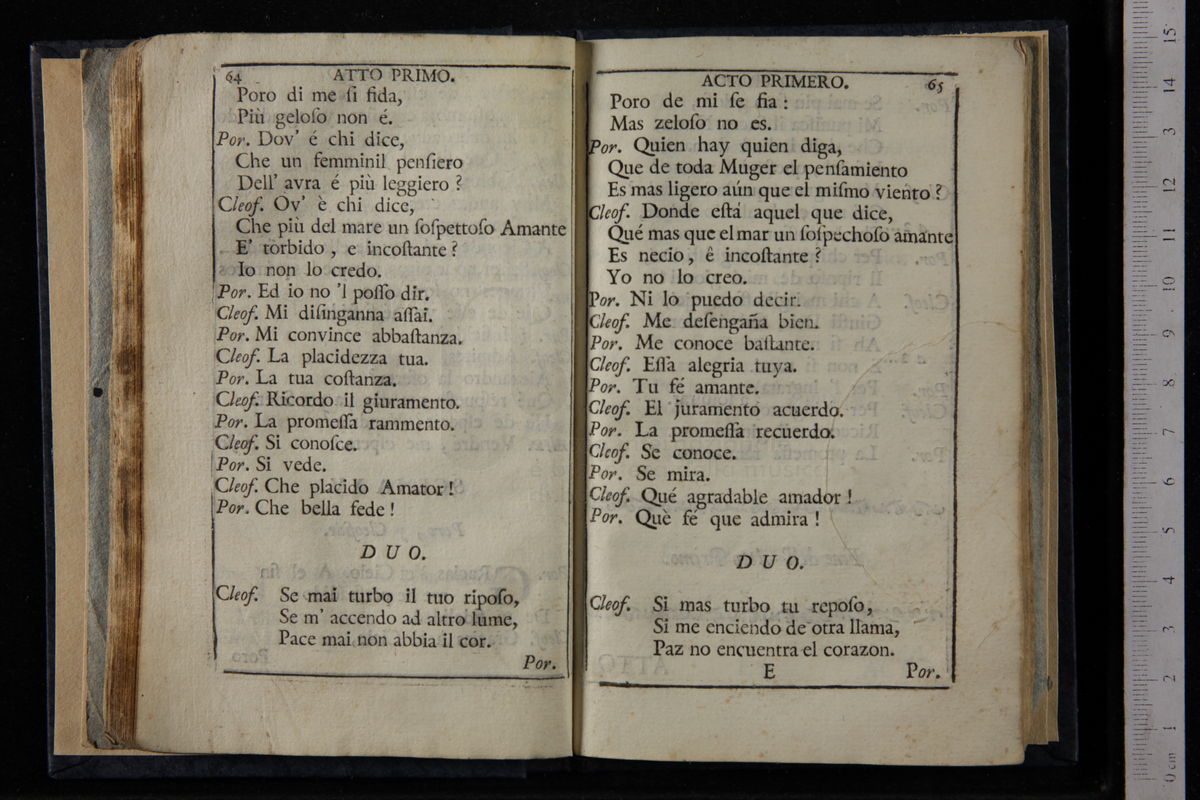 64 ATTO PRIMO.
Poro di me ſi fida,
Più geloſo non é.
Por. Dov' é chi dice,
Che un femminil penſiero
Dell' avra é più leggiero ?
Cleof. Ov' è chi dice,
Che più del mare un ſoſpettoſo Amante
E' torbido , e incoſtante ?
Io non lo credo.
Por. Ed io no 'l poſſo dir.
Cleof. Mi diſinganna aſſai.
Por. Mi convince abbaſtanza.
Cleof. La placidezza tua.
Por. La tua coſtanza.
Cleof. Ricordo il giuramento.
Por. La promeſſa rammento.
Cleof. Si conoſce.
Por. Si vede.
Cleof. Che placido Amator !
Por. Che bella fede !
DUO.
Cleof. Se mai turbo il tuo ripoſo,
Se m' accendo ad altro lume,
Pace mai non abbia il cor.
Por.
ACTO PRIMERO. 65
Poro de mi ſe fia :
Mas zeloſo no es.
Por. Quien hay quien diga,
Que de toda Muger el penſamiento
Es mas ligero aún que el miſmo viento ?
Cleof. Donde eſtá aquel que dice,
Qué mas que el mar un ſoſpechoſo amante
Es necio , ê incoſtante ?
Yo no lo creo.
Por. Ni lo puedo decir.
Cleof. Me deſengaña bien.
Por. Me conoce baſtante.
Cleof. Eſſa alegria tuya.
Por. Tu fé amante.
Cleof. El juramento acuerdo.
Por. La promeſſa recuerdo.
Cleof. Se conoce.
Por. Se mira.
Cleof. Qué agradable amador !
Por. Què fé que admira !
DUO.
Cleof. Si mas turbo tu repoſo,
Si me enciendo de otra llama,
Paz no encuentra el corazon.
E Por.
0 cm 1 2 3 4 5 6 7 8 9 10 11 12 13 14 15